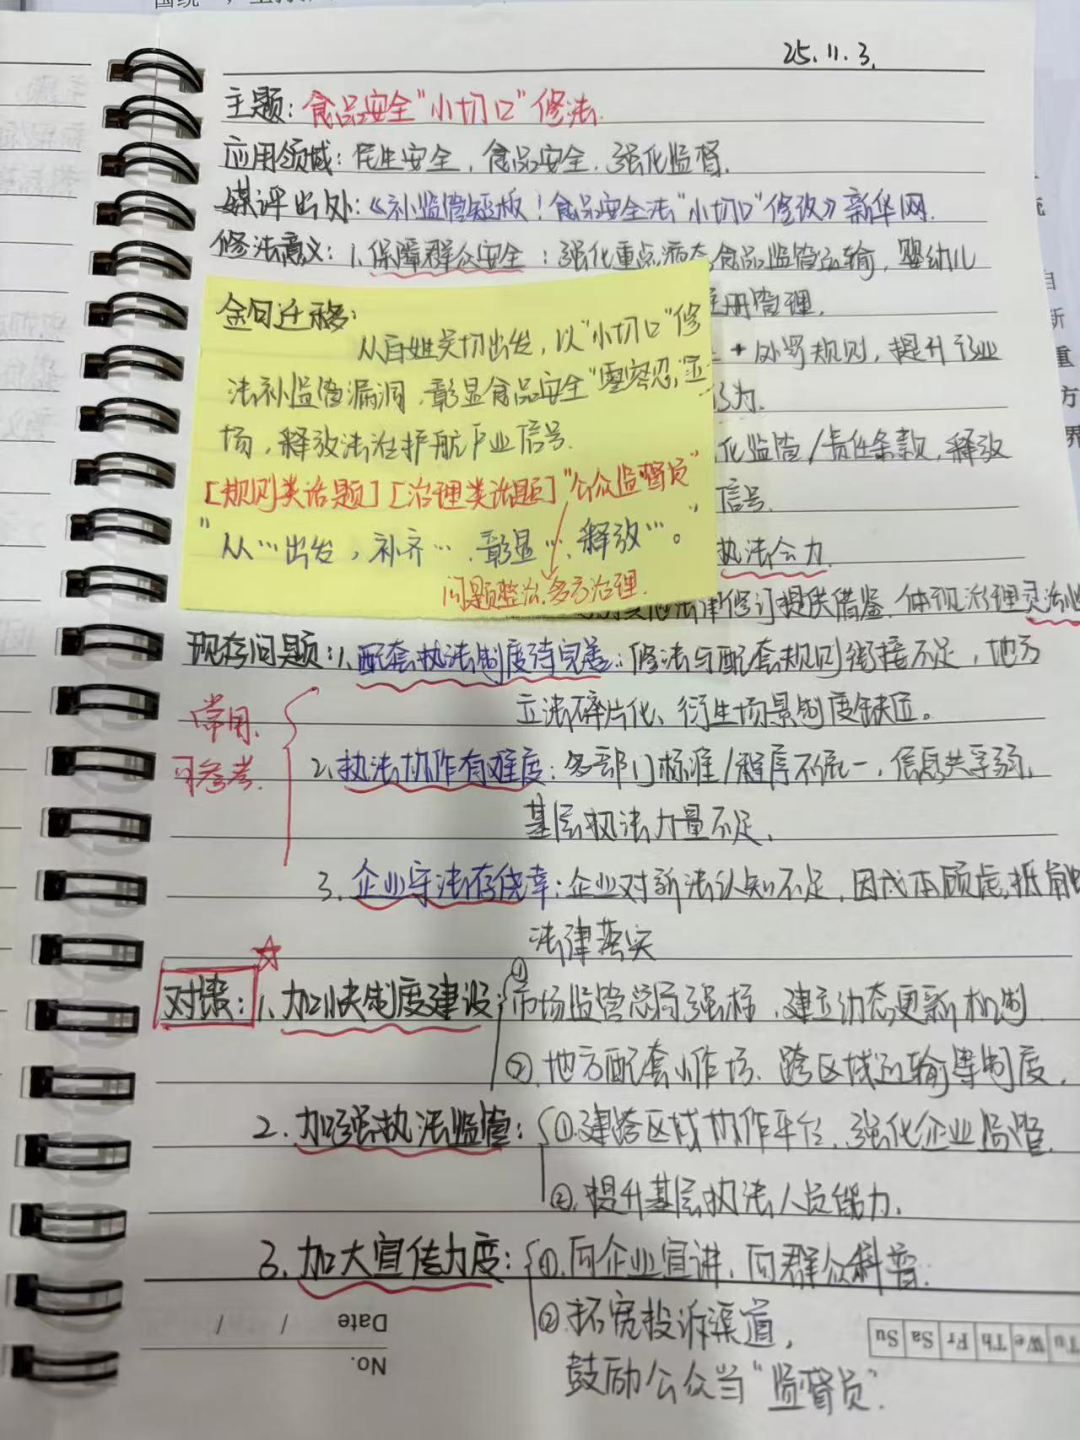 25.11.3.
主题：食品安全"小切口"修法.
应用领域：民生安全，食品安全．强化监督.
媒评出处：《补监管短板！食品安全法"小切口"修改》新华网.
修法意义：1.保障群众安全：强化重点液态食品监管运输，婴幼儿
册管理.
金句迁移：
从百姓关切出发，以"小切口"修
法补监管漏洞，彰显食品安全"零容忍"立
场，释放法治护航产业信号.
[规则类话题][治理类话题]"公众监督员"
"从…出发，补齐…．彰显…．释放…。"
问题整治.多方治理.
+处罚规则，提升行业
为.
化监管/责任条款，释放
信号.
执法合力.
法律修订提供借鉴．体现治理灵活性
现存问题：1.配套执法制度待完善：修法与配套规则衔接不足，地方
立法碎片化、衍生场景制度缺位。
常用.
可参考.
2.执法协作有难度：各部门标准/程序不统一，信息共享弱，
基层执法力量不足.
3.企业守法存侥幸：企业对新法认知不足，因成本顾虑，抵触
法律落实
☆
对策：1.加快制度建设：①市场监管总局强标，建立动态更新机制
②.地方配套小作坊、跨区域运输等制度.
2.加强执法监管：①.建跨区域协作平台，强化企业监管.
②.提升基层执法人员能力.
3.加大宣传力度：①.向企业宣讲，向群众科普.
②.拓宽投诉渠道，
鼓励公众当"监督员".
Date / /
No.
Tu We Th Fr Sa Su